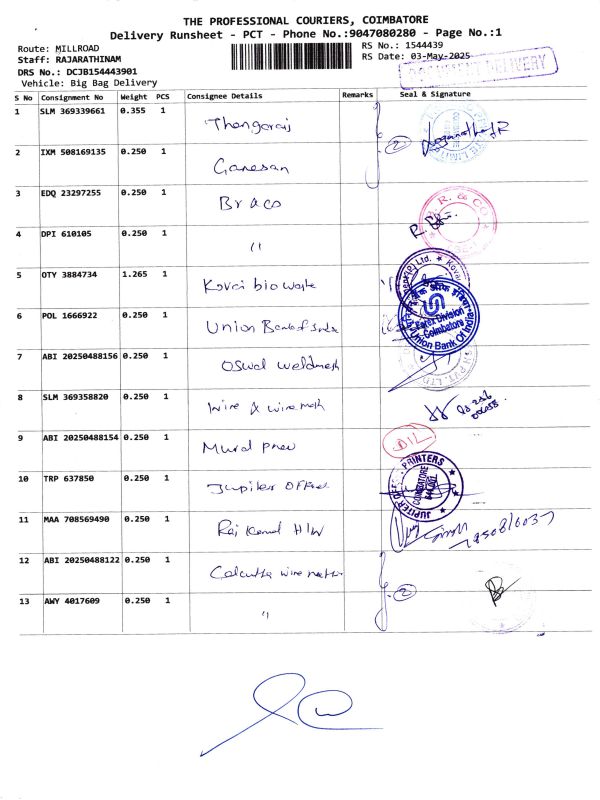 THE PROFESSIONAL COURIERS, COIMBATORE
Delivery Runsheet - PCT - Phone No.:9047080280 - Page No.:1
Route: MILLROAD
RS No.: 1544439
Staff: RAJARATHINAM
RS Date: 03-May-2025
DRS No.: DCJB154443901
DOCUMENT DELIVERY
Vehicle: Big Bag Delivery
S No Consignment No Weight PCS Consignee Details Remarks Seal & Signature
1 SLM 369339661 0.355 1 Thangaraj
2 IXM 508169135 0.250 1 Ganesan 2
3 EDQ 23297255 0.250 1 BR & CO R. & CO
4 DPI 610105 0.250 1 "
5 OTY 3884734 1.265 1 Kovai bio waste
6 POL 1666922 0.250 1 Union Bank of India Coimbatore Union Bank Of India
7 ABI 20250488156 0.250 1 Oswal weldmesh
8 SLM 369358820 0.250 1 Wire & wire mesh
9 ABI 20250488154 0.250 1 D/L
10 TRP 637850 0.250 1 Jupiter Offset JUPITER PRINTERS COIMBATORE
11 MAA 708569490 0.250 1 Raj Kamal H/W
12 ABI 20250488122 0.250 1 Calcutta wire 2
13 AWY 4017609 0.250 1 "